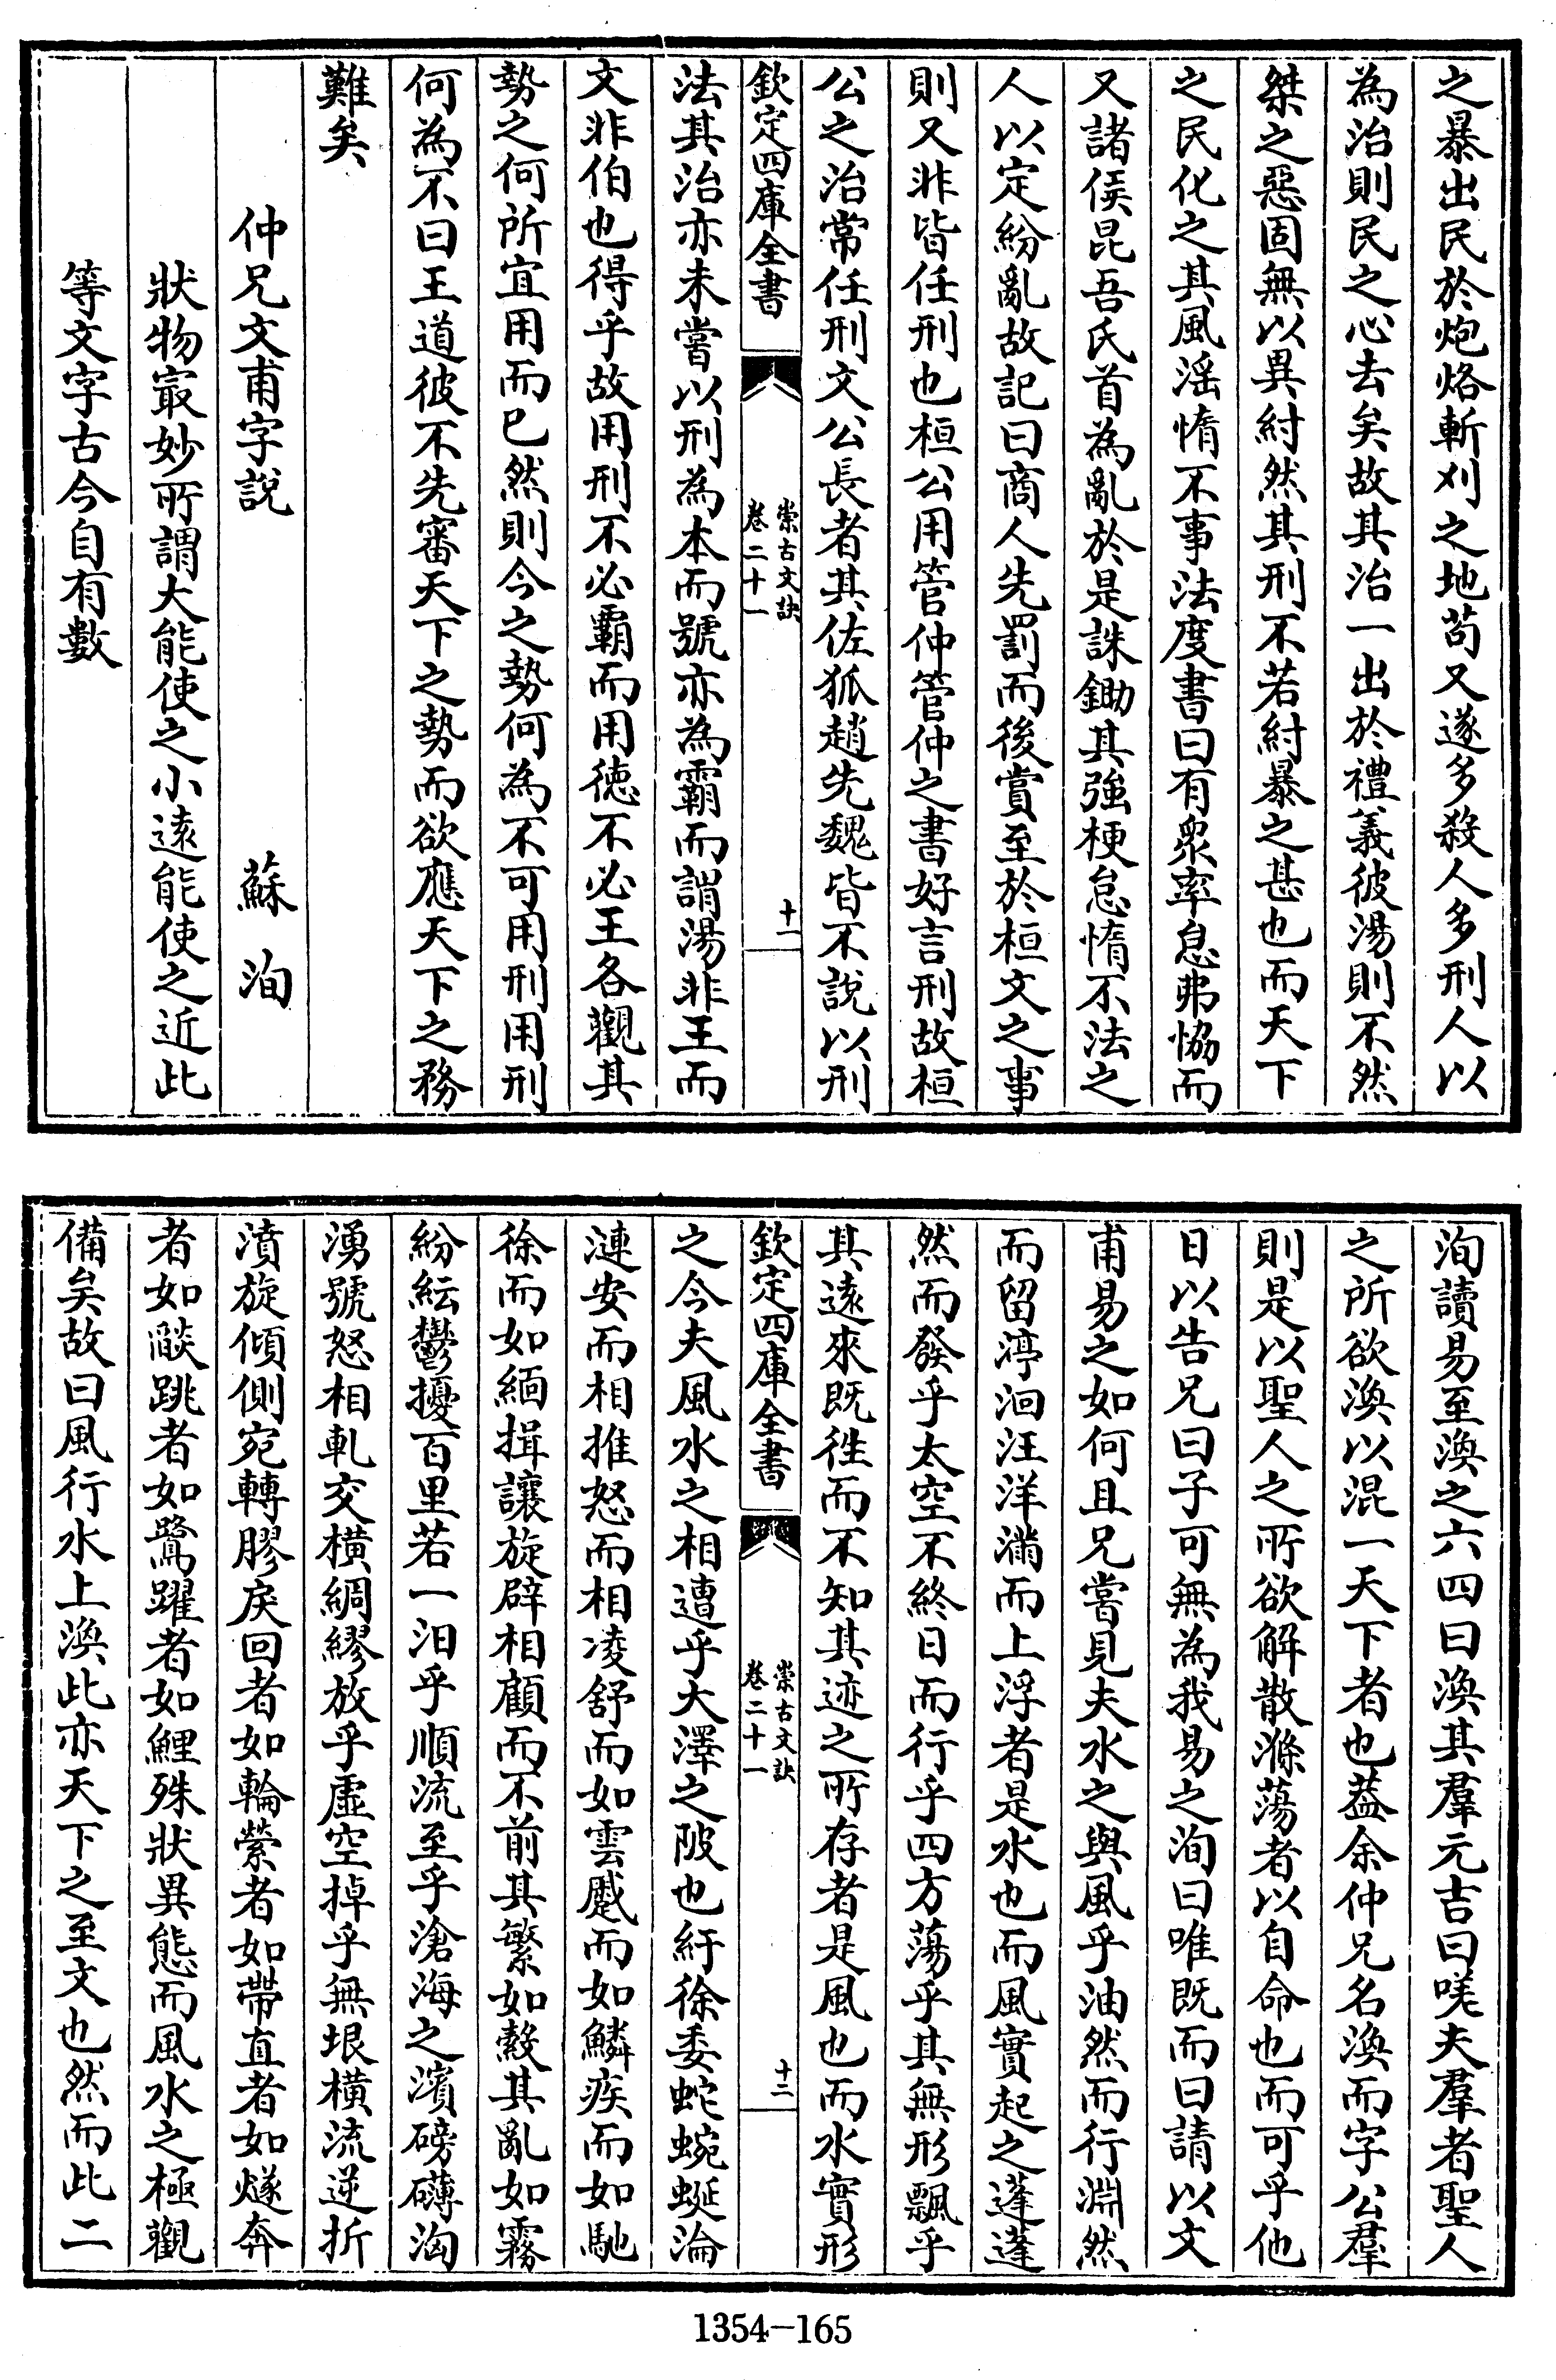 之暴出民於炮烙斬刈之地茍又遂多殺人多刑人以
為治則民之心去矣故其治一出於禮義彼湯則不然
桀之惡固無以異紂然其刑不若紂暴之甚也而天下
之民化之其風淫惰不事法度書曰有衆率怠弗恊而
又諸侯昆吾氏首為亂於是誅鋤其強梗怠惰不法之
人以定紛亂故記曰商人先罰而後賞至於桓文之事
則又非皆任刑也桓公用管仲管仲之書好言刑故桓
公之治常任刑文公長者其佐狐趙先魏皆不說以刑
欽定四庫全書
崇古文訣
卷二十一
十一
法其治亦未嘗以刑為本而號亦為霸而謂湯非王而
文非伯也得乎故用刑不必霸而用徳不必王各觀其
勢之何所宜用而已然則今之勢何為不可用刑用刑
何為不曰王道彼不先審天下之勢而欲應天下之務
難矣
仲兄文甫字說
蘇洵
狀物㝡妙所謂大能使之小遠能使之近此
等文字古今自有數
洵讀易至渙之六四曰渙其羣元吉曰嗟夫羣者聖人
之所欲渙以混一天下者也葢余仲兄名渙而字公羣
則是以聖人之所欲解散滌蕩者以自命也而可乎他
日以告兄曰子可無為我易之洵曰唯既而曰請以文
甫易之如何且兄嘗見夫水之與風乎油然而行淵然
而留渟洄汪洋滿而上浮者是水也而風實起之蓬蓬
然而發乎太空不終日而行乎四方蕩乎其無形飄乎
其遠來既徃而不知其迹之所存者是風也而水實形
欽定四庫全書
崇古文訣
卷二十一
十二
之今夫風水之相遭乎大澤之陂也紆徐委蛇蜿蜒淪
漣安而相推怒而相凌舒而如雲蹙而如鱗疾而如馳
徐而如緬揖讓旋辟相顧而不前其繁如縠其亂如霧
紛紜鬱擾百里若一汩乎順流至乎滄海之濱磅礴洶
湧號怒相軋交橫綢繆放乎虛空掉乎無垠橫流逆折
濆旋傾側宛轉膠戾回者如輪縈者如帶直者如燧奔
者如燄跳者如鷺躍者如鯉殊狀異態而風水之極觀
備矣故曰風行水上渙此亦天下之至文也然而此二
1354-165